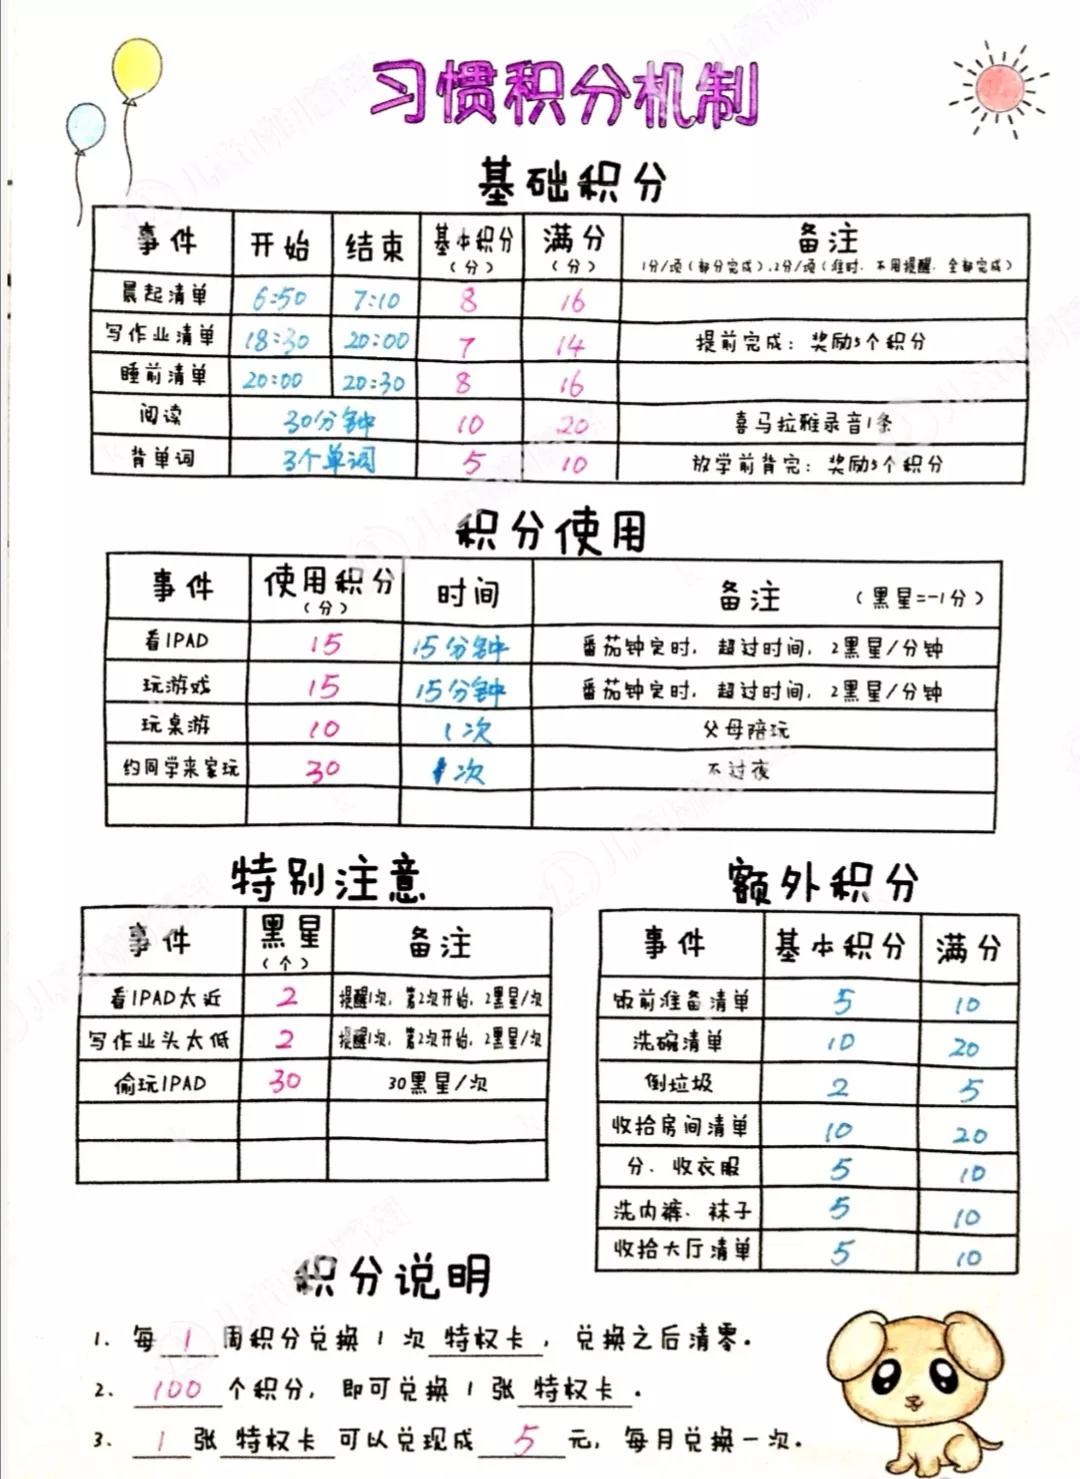 习惯积分机制
基础积分
事件 开始 结束 基本积分（分） 满分（分） 备注 1分/项（部分完成）、2分/项（准时、不用提醒、全部完成）
晨起清单 6:50 7:10 8 16
写作业清单 18:30 20:00 7 14 提前完成：奖励5个积分
睡前清单 20:00 20:30 8 16
阅读 30分钟 10 20 喜马拉雅录音1条
背单词 3个单词 5 10 放学前背完：奖励5个积分
积分使用
事件 使用积分（分） 时间 备注 （黑星=-1分）
看IPAD 15 15分钟 番茄钟定时，超过时间，2黑星/分钟
玩游戏 15 15分钟 番茄钟定时，超过时间，2黑星/分钟
玩桌游 10 1次 父母陪玩
约同学来家玩 30 1次 不过夜
特别注意
事件 黑星（个） 备注
看IPAD太近 2 提醒1次，第2次开始，2黑星/次
写作业头太低 2 提醒1次，第2次开始，2黑星/次
偷玩IPAD 30 30黑星/次
额外积分
事件 基本积分 满分
饭前准备清单 5 10
洗碗清单 10 20
倒垃圾 2 5
收拾房间清单 10 20
分、收衣服 5 10
洗内裤、袜子 5 10
收拾大厅清单 5 10
积分说明
1. 每 1 周积分兑换 1 次 特权卡，兑换之后清零。
2. 100 个积分，即可兑换 1 张 特权卡。
3. 1 张 特权卡 可以兑现成 5 元，每月兑换一次。